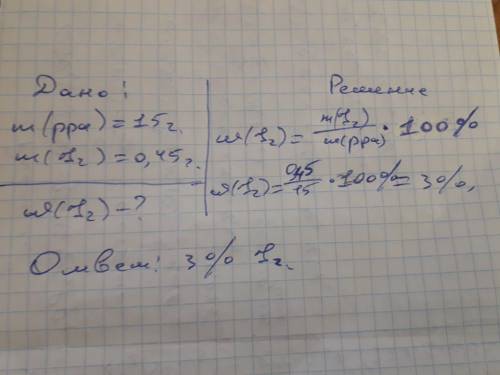 Дано:
m(рра) = 15г.
m(I₂) = 0,45г.
ω(I₂) - ?
Решение
ω(I₂) = m(I₂)/m(рра) · 100%
ω(I₂) = 0,45/15 · 100% = 3%.
Ответ: 3% I₂.